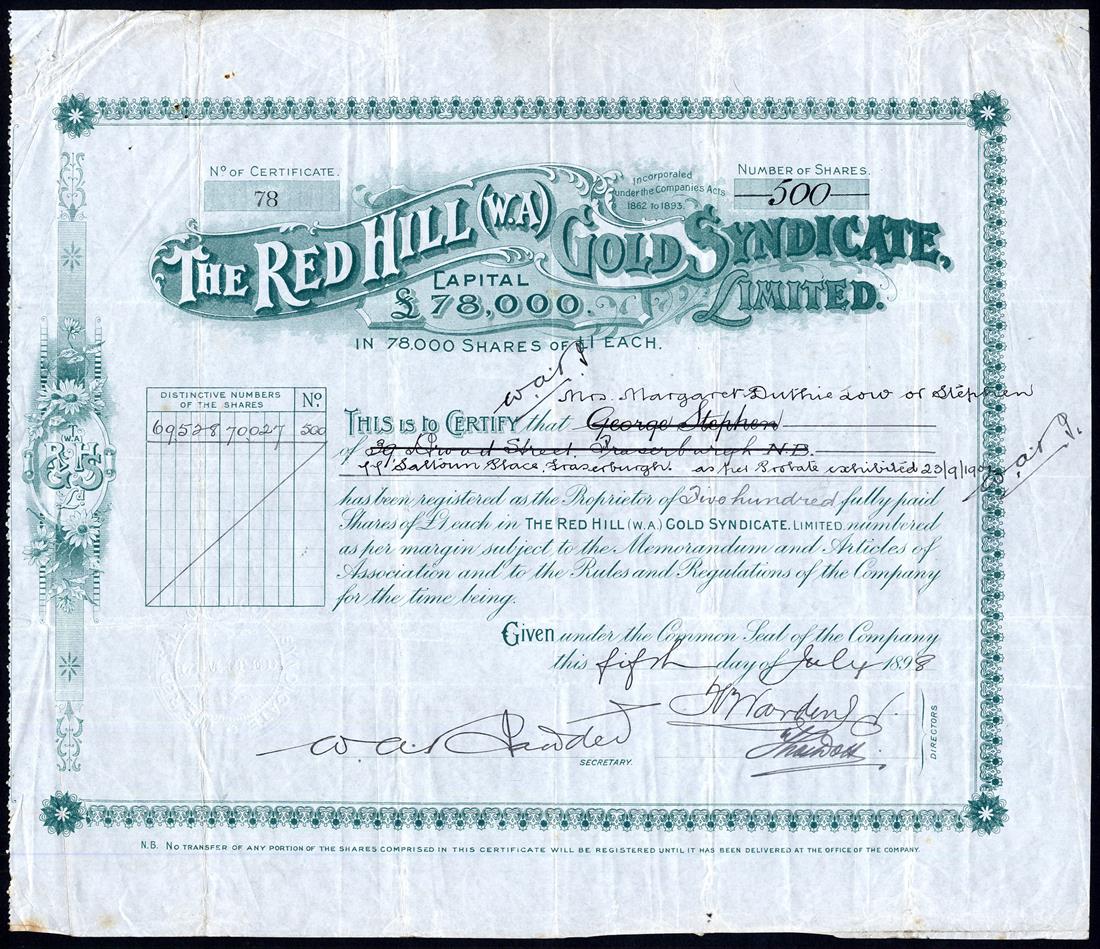 Nº OF CERTIFICATE.
78
Incorporated
under the Companies Acts
1862 to 1893.
NUMBER OF SHARES.
500
THE RED HILL (W.A.) GOLD SYNDICATE,
LIMITED.
CAPITAL
£78,000.
IN 78,000 SHARES OF £1 EACH.
DISTINCTIVE NUMBERS
OF THE SHARES
Nº
69528 70027 500
w.a.r.P.
Mrs. Margaret Duthie Low or Stephen
THIS IS to CERTIFY that George Stephen
of 39 Street, Fraserburgh N.B.
Saltoun Place, Fraserburgh. as per Probate exhibited 23/9/19
w.a.r.P.
has been registered as the Proprietor of Five hundred fully paid
Shares of £1 each in THE RED HILL (W.A.) GOLD SYNDICATE, LIMITED, numbered
as per margin subject to the Memorandum and Articles of
Association and to the Rules and Regulations of the Company
for the time being.
Given under the Common Seal of the Company
this fifth day of July 1898
DIRECTORS
SECRETARY.
T (W.A.)
RHGS
Ld
N.B. NO TRANSFER OF ANY PORTION OF THE SHARES COMPRISED IN THIS CERTIFICATE WILL BE REGISTERED UNTIL IT HAS BEEN DELIVERED AT THE OFFICE OF THE COMPANY.